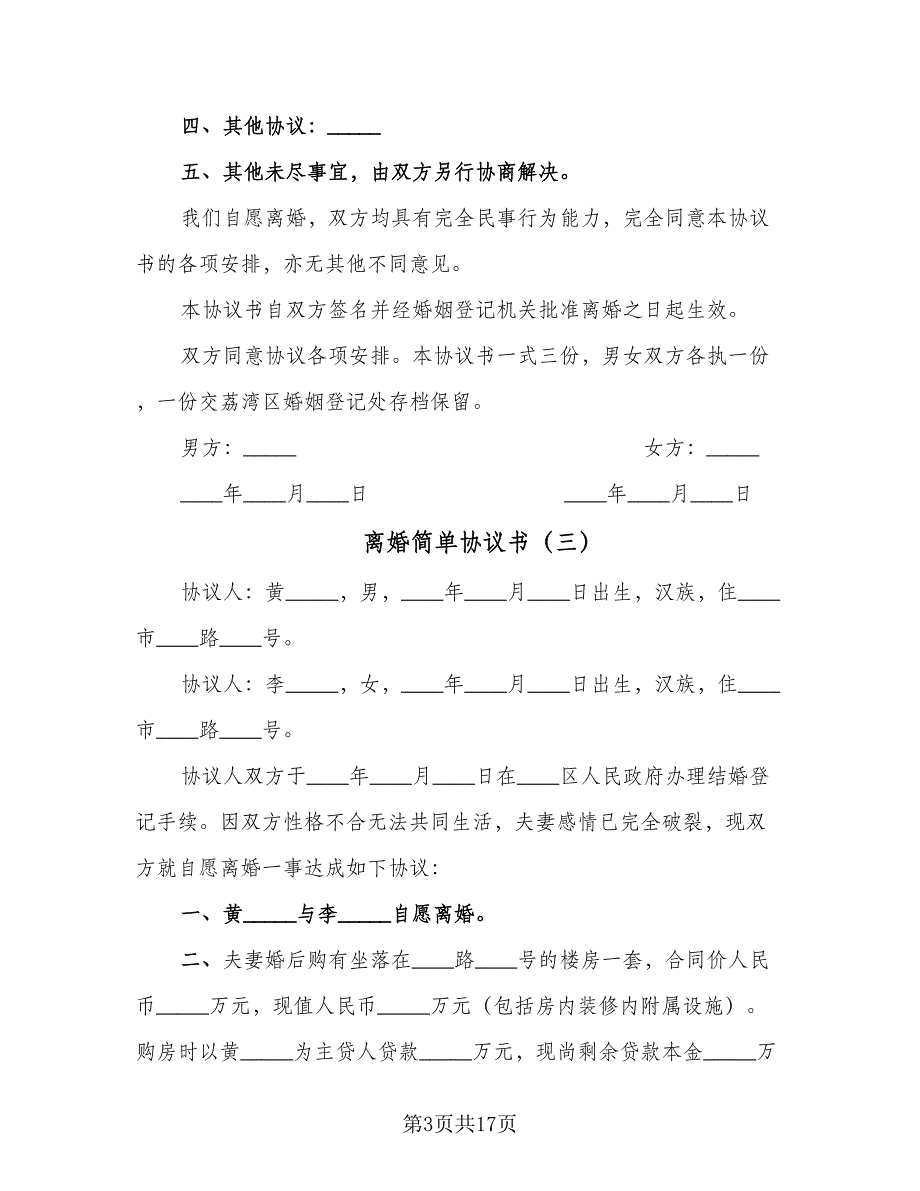 四、其他协议：_____
五、其他未尽事宜，由双方另行协商解决。
我们自愿离婚，双方均具有完全民事行为能力，完全同意本协议
书的各项安排，亦无其他不同意见。
本协议书自双方签名并经婚姻登记机关批准离婚之日起生效。
双方同意协议各项安排。本协议书一式三份，男女双方各执一份
，一份交荔湾区婚姻登记处存档保留。
男方：_____ 女方：_____
____年____月____日 ____年____月____日
离婚简单协议书（三）
协议人：黄_____，男，____年____月____日出生，汉族，住____
市____路____号。
协议人：李_____，女，____年____月____日出生，汉族，住____
市____路____号。
协议人双方于____年____月____日在____区人民政府办理结婚登
记手续。因双方性格不合无法共同生活，夫妻感情已完全破裂，现双
方就自愿离婚一事达成如下协议：
一、黄_____与李_____自愿离婚。
二、夫妻婚后购有坐落在____路____号的楼房一套，合同价人民
币_____万元，现值人民币_____万元（包括房内装修内附属设施）。
购房时以黄_____为主贷人贷款_____万元，现尚剩余贷款本金_____万
第3页共17页